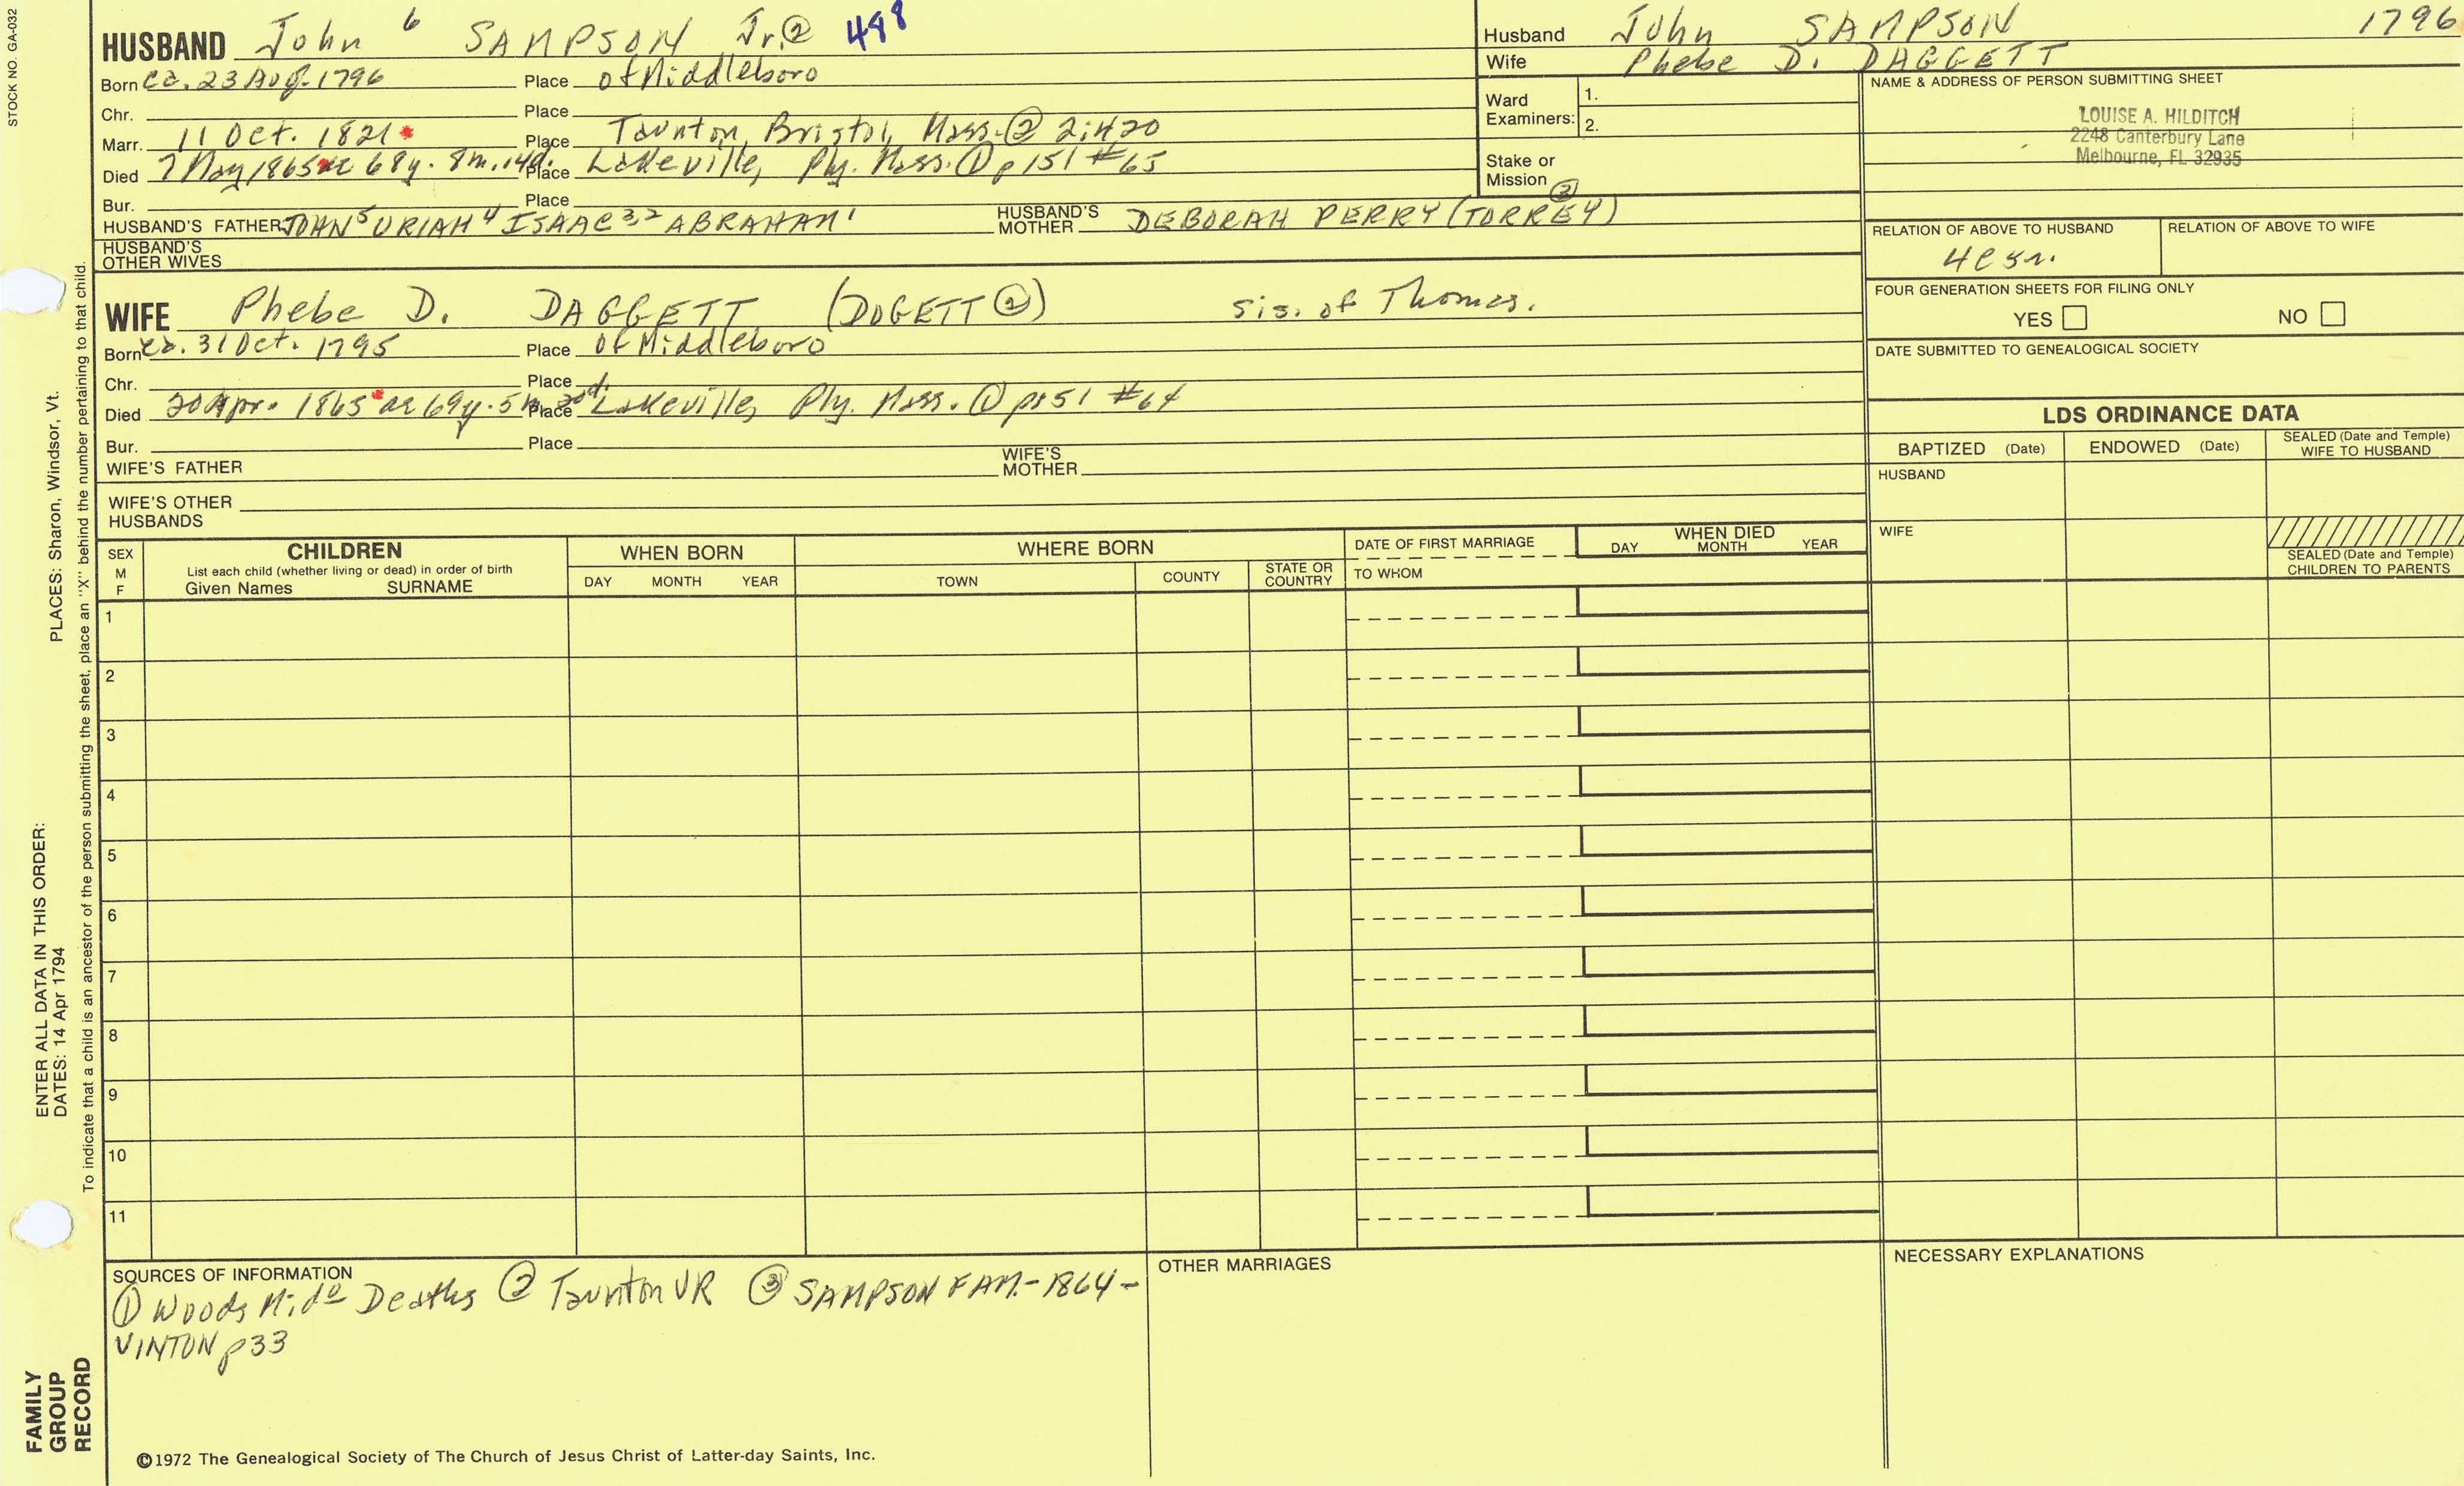 STOCK NO. GA-032
HUSBAND John 6 SAMPSON Jr. ② 488
Born ca. 23 Aug. 1796 Place of Middleboro
Chr. Place
Marr. 11 Oct. 1821 Place Taunton, Bristol, Mass. ② 2:420
Died 7 May 1865 ae 68y. 8m. 14d. Place Lakeville, Ply. Mass. ① p 151 #65
Bur. Place
HUSBAND'S FATHER JOHN 5 URIAH 4 ISAAC 3,2 ABRAHAM 1 HUSBAND'S MOTHER DEBORAH PERRY (TORREY) ③
HUSBAND'S OTHER WIVES
Husband John SAMPSON 1796
Wife Phebe D. DAGGETT
Ward Examiners: 1.
2.
Stake or Mission
NAME & ADDRESS OF PERSON SUBMITTING SHEET
LOUISE A. HILDITCH
2248 Canterbury Lane
Melbourne, FL 32935
RELATION OF ABOVE TO HUSBAND RELATION OF ABOVE TO WIFE
FOUR GENERATION SHEETS FOR FILING ONLY
YES NO
DATE SUBMITTED TO GENEALOGICAL SOCIETY
WIFE Phebe D. DAGGETT (DOGETT ②) sis. of Thomas.
Born ca. 31 Oct. 1795 Place of Middleboro
Chr. Place
Died 20 Apr. 1865 ae 69y. 5m. 20d. Place Lakeville, Ply. Mass. ① p151 #64
Bur. Place
WIFE'S FATHER WIFE'S MOTHER
WIFE'S OTHER HUSBANDS
LDS ORDINANCE DATA
BAPTIZED (Date) ENDOWED (Date) SEALED (Date and Temple) WIFE TO HUSBAND
HUSBAND
WIFE
SEALED (Date and Temple) CHILDREN TO PARENTS
SEX M F
CHILDREN
List each child (whether living or dead) in order of birth
Given Names SURNAME
WHEN BORN
DAY MONTH YEAR
WHERE BORN
TOWN COUNTY STATE OR COUNTRY
DATE OF FIRST MARRIAGE
TO WHOM
WHEN DIED
DAY MONTH YEAR
1
2
3
4
5
6
7
8
9
10
11
SOURCES OF INFORMATION
① Woods Mido Deaths ② Taunton VR ③ SAMPSON FAM. - 1864 -
VINTON p33
OTHER MARRIAGES
NECESSARY EXPLANATIONS
©1972 The Genealogical Society of The Church of Jesus Christ of Latter-day Saints, Inc.
FAMILY GROUP RECORD
ENTER ALL DATA IN THIS ORDER:
DATES: 14 Apr 1794
PLACES: Sharon, Windsor, Vt.
To indicate that a child is an ancestor of the person submitting the sheet, place an "X" behind the number pertaining to that child.